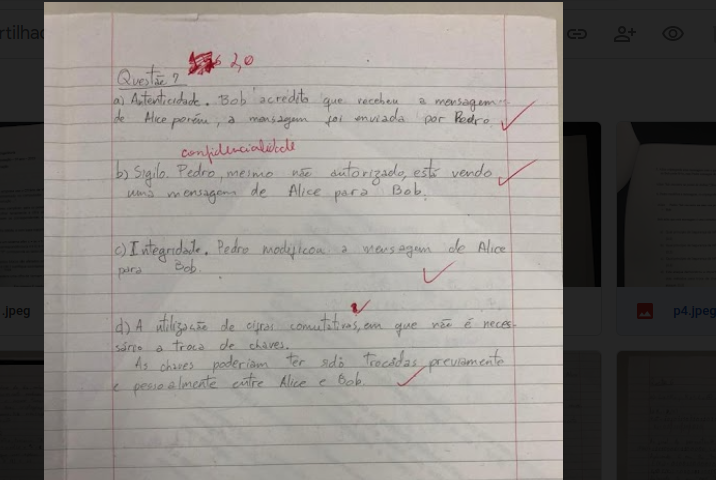 rtilhad
2,0
Questão 7
a) Autenticidade. Bob acredita que recebeu a mensagem
de Alice porém, a mensagem foi enviada por Pedro.
confidencialidade
b) Sigilo. Pedro, mesmo não autorizado, está vendo
uma mensagem de Alice para Bob.
c) Integridade. Pedro modificou a mensagem de Alice
para Bob.
d) A utilização de cifras comutativas, em que não é neces-
sário a troca de chaves.
As chaves poderiam ter sido trocadas previamente
e pessoalmente entre Alice e Bob.
.jpeg
p4.jpeg